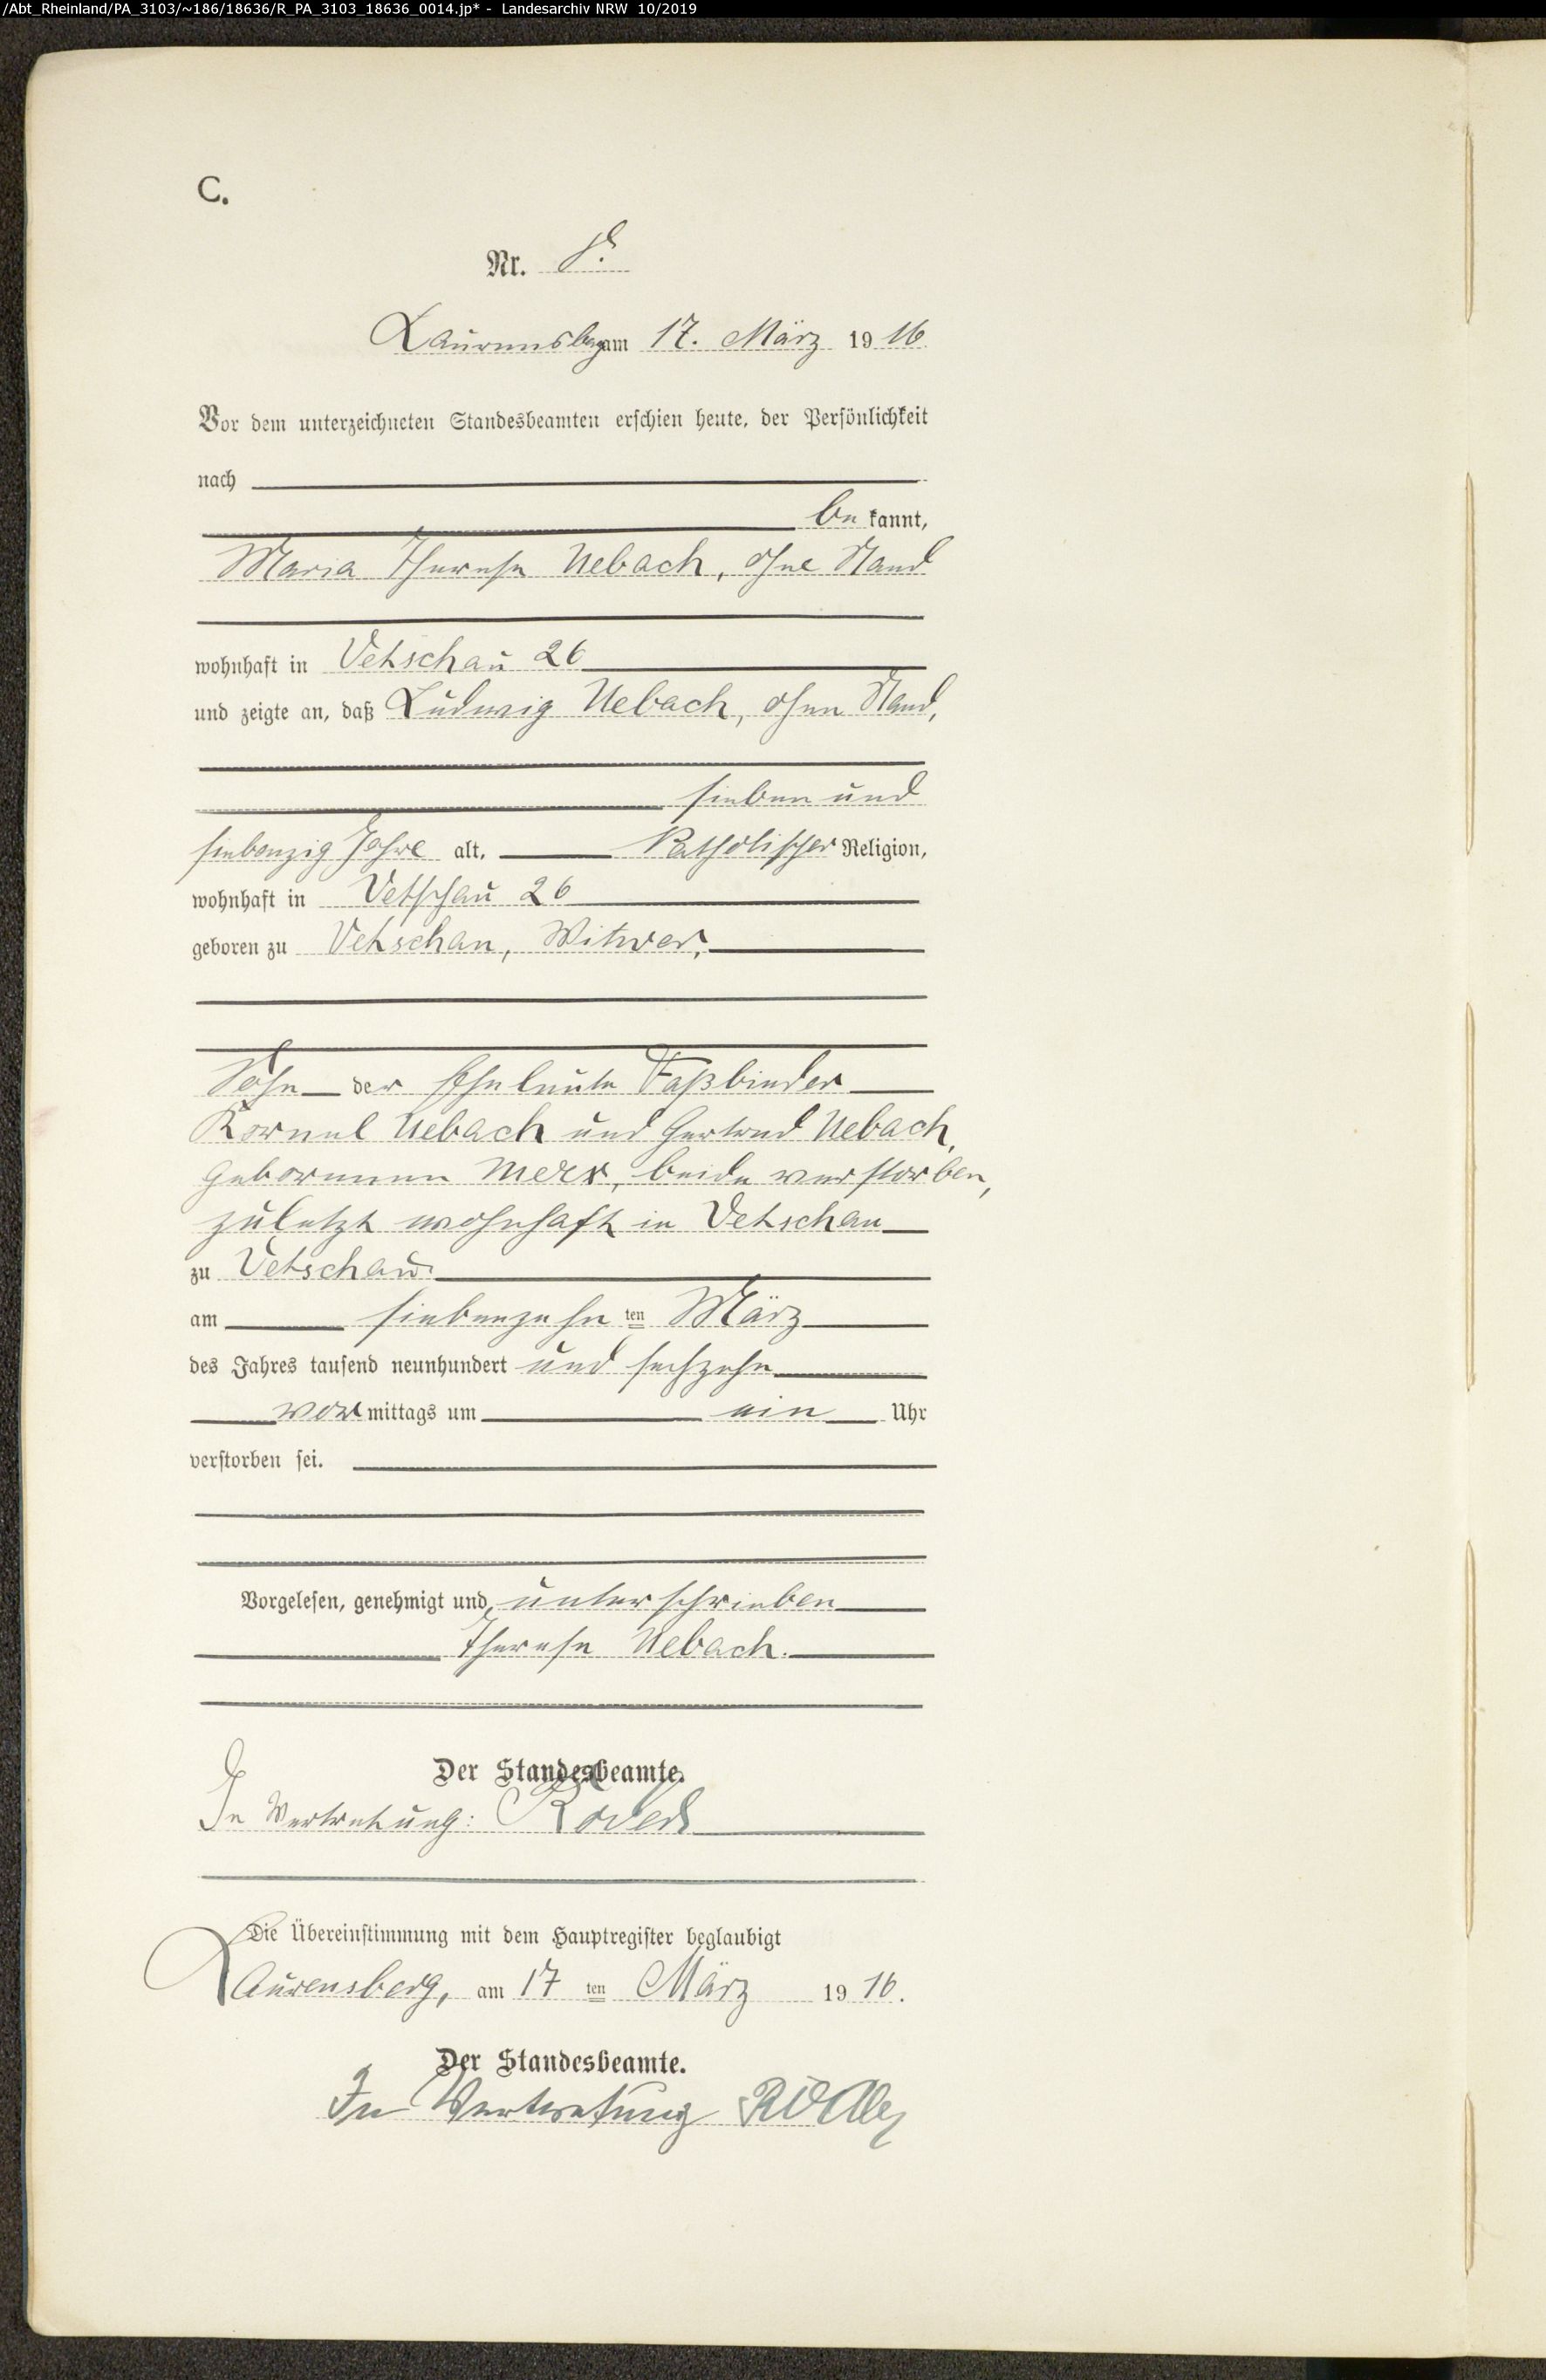 /Abt_Rheinland/PA_3103/~186/18636/R_PA_3103_18636_0014.jp* - Landesarchiv NRW 10/2019
C.
Nr. 8.
Laurensberg am 17. März 1916
Vor dem unterzeichneten Standesbeamten erschien heute, der Persönlichkeit
nach
be kannt,
Maria Therese Uebach, ohne Stand
wohnhaft in Vetschau 26
und zeigte an, daß Ludwig Uebach, ohne Stand,
sieben und
siebenzig Jahre alt, katholischer Religion,
wohnhaft in Vetschau 26
geboren zu Vetschau, Witwer,
Sohn der Eheleute Faßbinder
Kornel Uebach und Gertrud Uebach,
geborenen Merx, beide verstorben,
zuletzt wohnhaft in Vetschau
zu Vetschau
am siebenzehn ten März
des Jahres tausend neunhundert und sechzehn
vor mittags um ein Uhr
verstorben sei.
Vorgelesen, genehmigt und unterschrieben
Therese Uebach.
Der Standesbeamte.
In Vertretung:
Die Übereinstimmung mit dem Hauptregister beglaubigt
Laurensberg, am 17 ten März 1916.
Der Standesbeamte.
In Vertretung